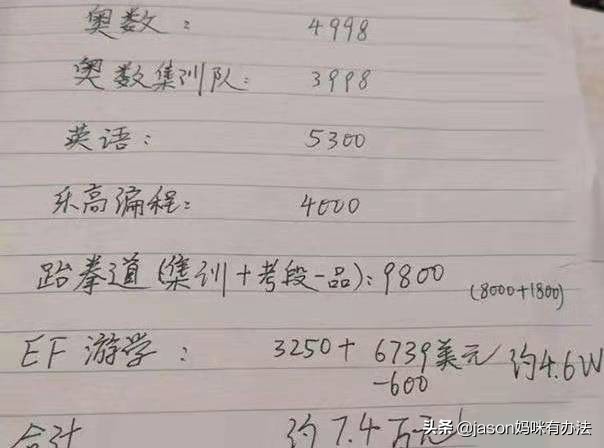 奥数： 4998
奥数集训队： 3998
英语： 5300
乐高编程： 4000
跆拳道(集训+考段一品)：9800 (8000+1800)
EF 游学： 3250+ 6739美元 约4.6W
-600
合计 约7.4万元
头条 @jason妈咪有办法